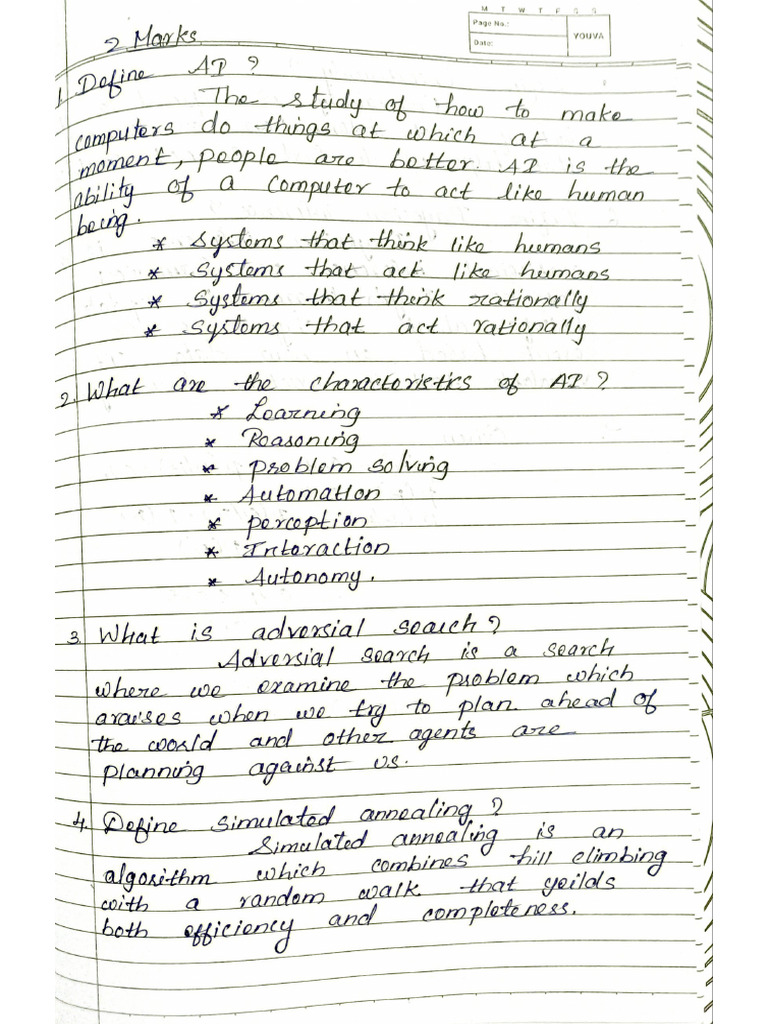 M T W T F S S
Page No.:
Date:
YOUVA
2 Marks
1. Define AI ?
The study of how to make
computers do things at which at a
moment, people are better. AI is the
ability of a computer to act like human
being.
* Systems that think like humans
* Systems that act like humans
* Systems that think rationally
* Systems that act rationally
2. What are the characteristics of AI ?
* Learning
* Reasoning
* problem solving
* Automation
* perception
* Interaction
* Autonomy.
3. What is adversial search ?
Adversial search is a search
where we examine the problem which
araises when we try to plan ahead of
the world and other agents are
planning against us.
4. Define simulated annealing ?
Simulated annealing is an
algorithm which combines hill climbing
with a random walk that yeilds
both efficiency and completeness.